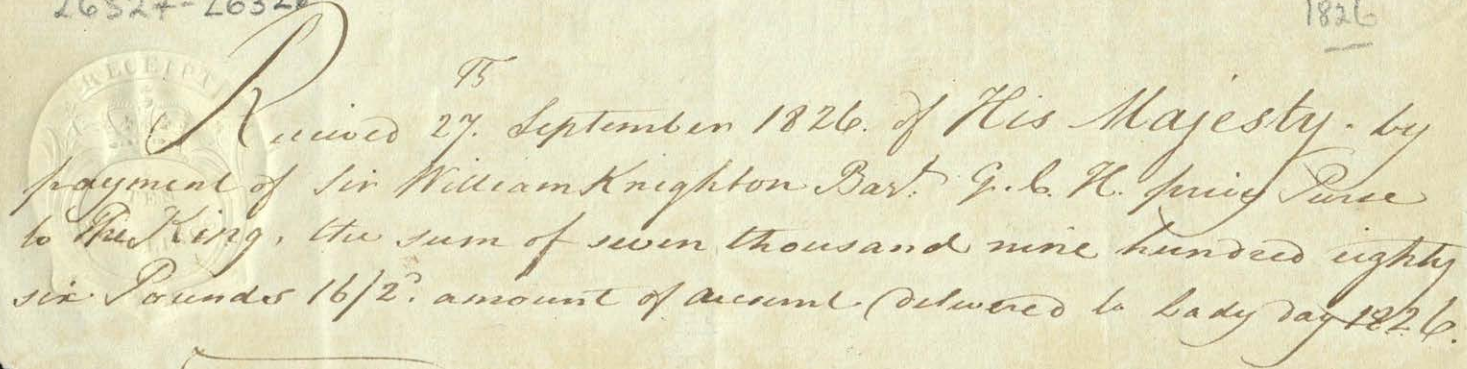 26327-2632
1826
RECEIPT
Received 27.th September 1826. of His Majesty. by
payment of Sir William Knighton Bart. G.C.H. privy Purse
to The King, the sum of seven thousand nine hundred eighty
six Pounds 16/2.d amount of account (delivered to Lady day 1826.